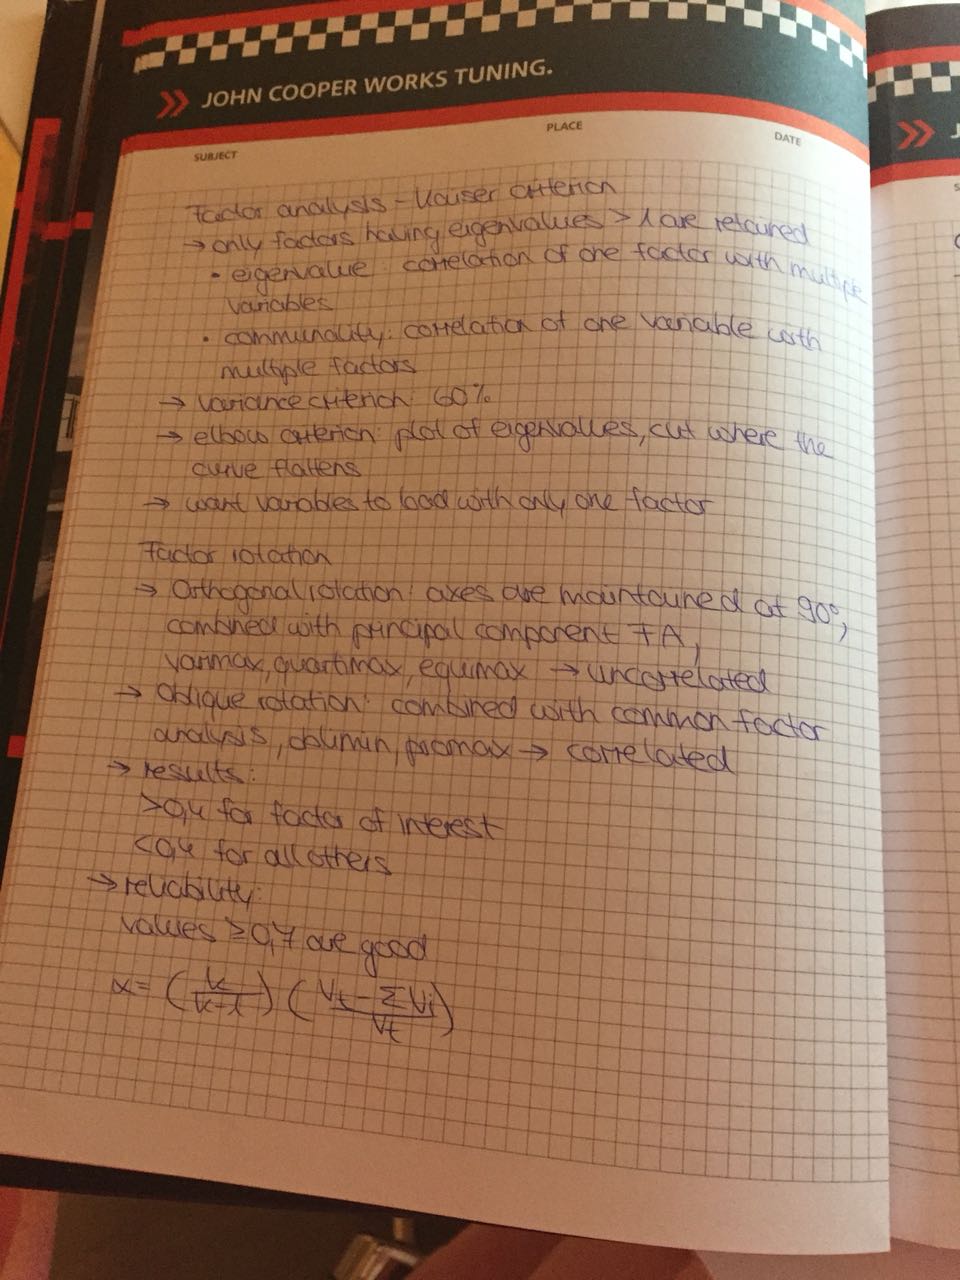 JOHN COOPER WORKS TUNING.
SUBJECT PLACE DATE
Factor analysis - Kaiser criterion
→ only factors having eigenvalues > 1 are retained
• eigenvalue: correlation of one factor with multiple
variables
• communality: correlation of one variable with
multiple factors
→ variance criterion: 60%
→ elbow criterion: plot of eigenvalues, cut where the
curve flattens
→ want variables to load with only one factor
Factor rotation
→ Orthogonal rotation: axes are maintained at 90°,
combined with principal component FA,
varimax, quartimax, equimax → uncorrelated
→ Oblique rotation: combined with common factor
analysis, oblimin, promax → correlated
→ results:
>0,4 for factor of interest
<0,4 for all others
→ reliability:
values ≥0,7 are good
α = (k/(k-1)) ((Vt - ΣVi)/Vt)